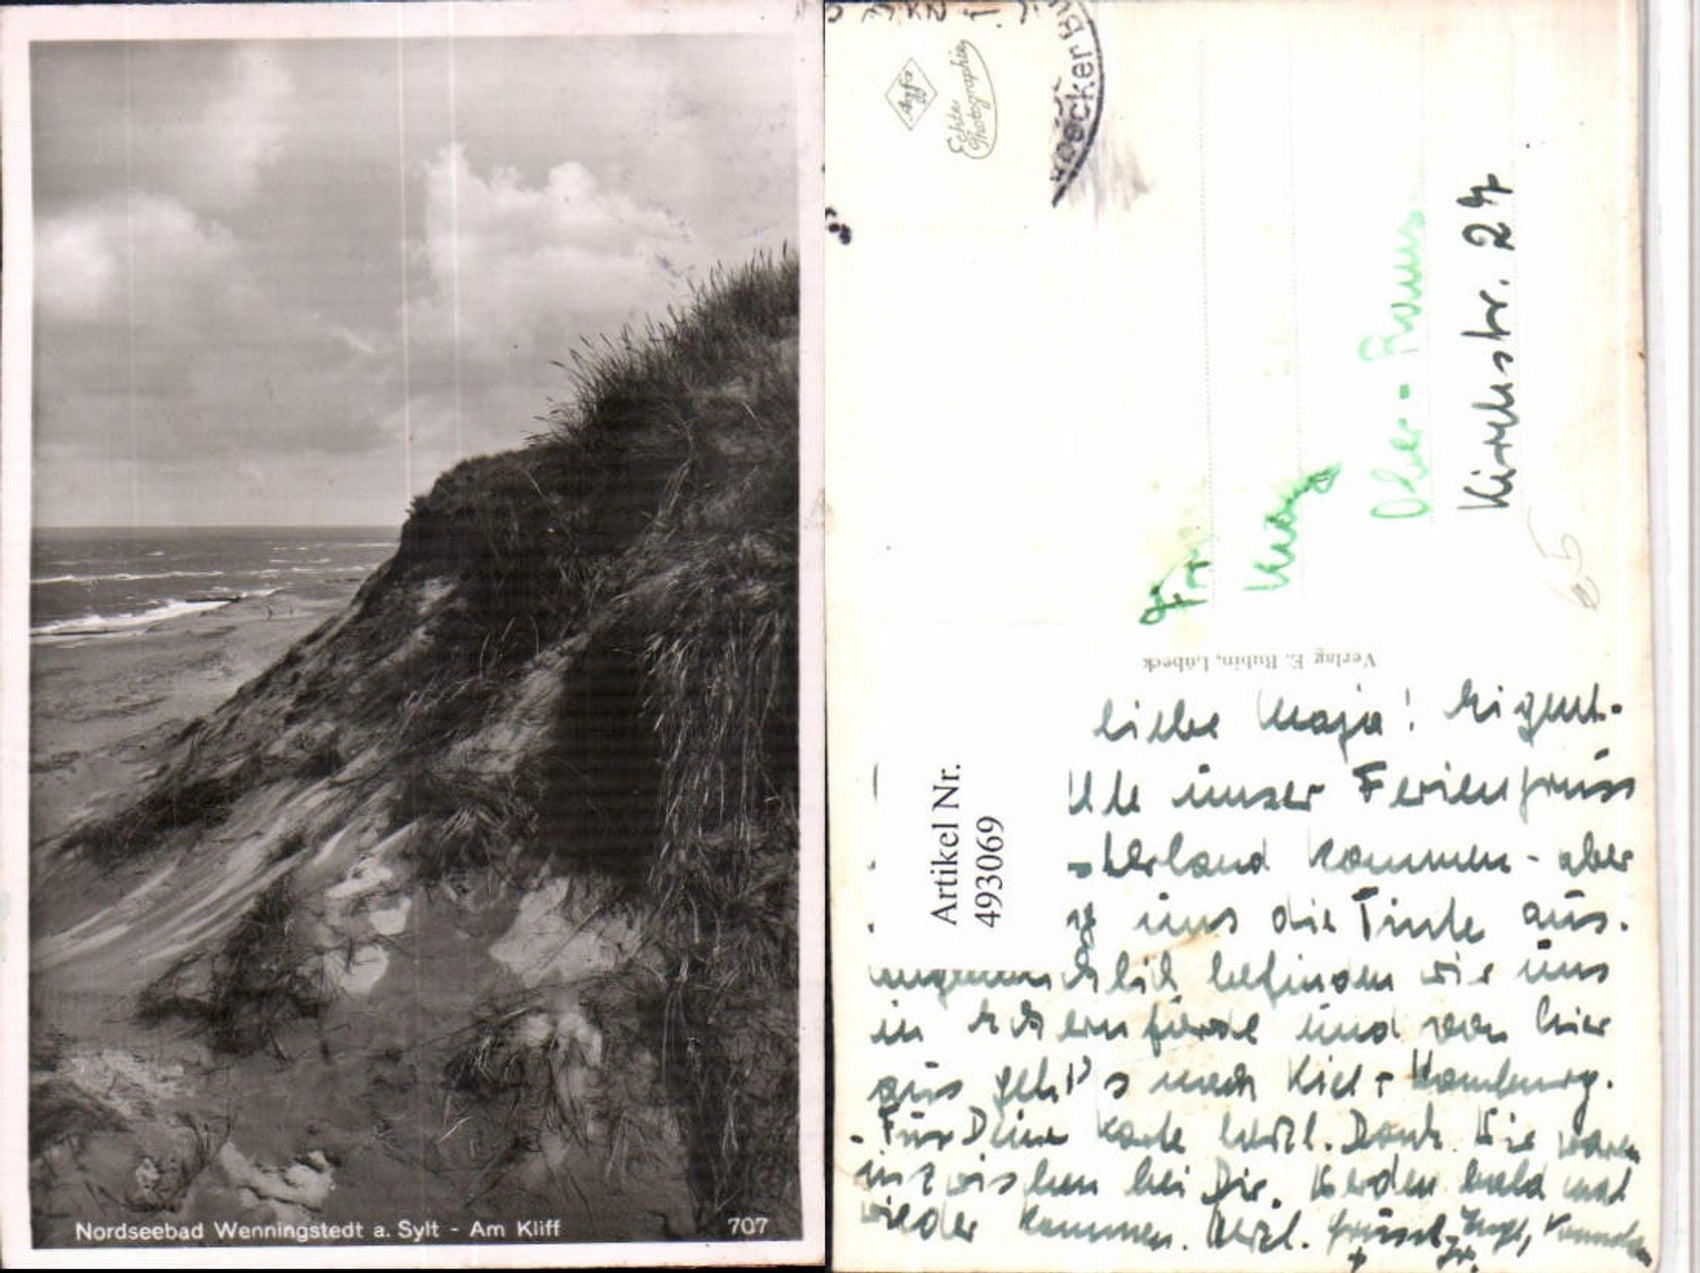 Nordseebad Wenningstedt a. Sylt - Am Kliff 707
Agfa
Echte
Photographie
Kirchstr. 27
65
Verlag E. Rubin, Lübeck
Artikel Nr.
493069
Liebe Maja! Eigent-
unser Feriengruss
sterland kommen - aber
uns die Tinte aus.
augenblicklich befinden wir uns
in Eckernförde und von hier
aus geht's nach Kiel + Hamburg.
Für Deine Karte herzl. Dank. Wir waren
inzwischen bei Dir. Werden bald mal
wieder kommen. Herzl. grüsst